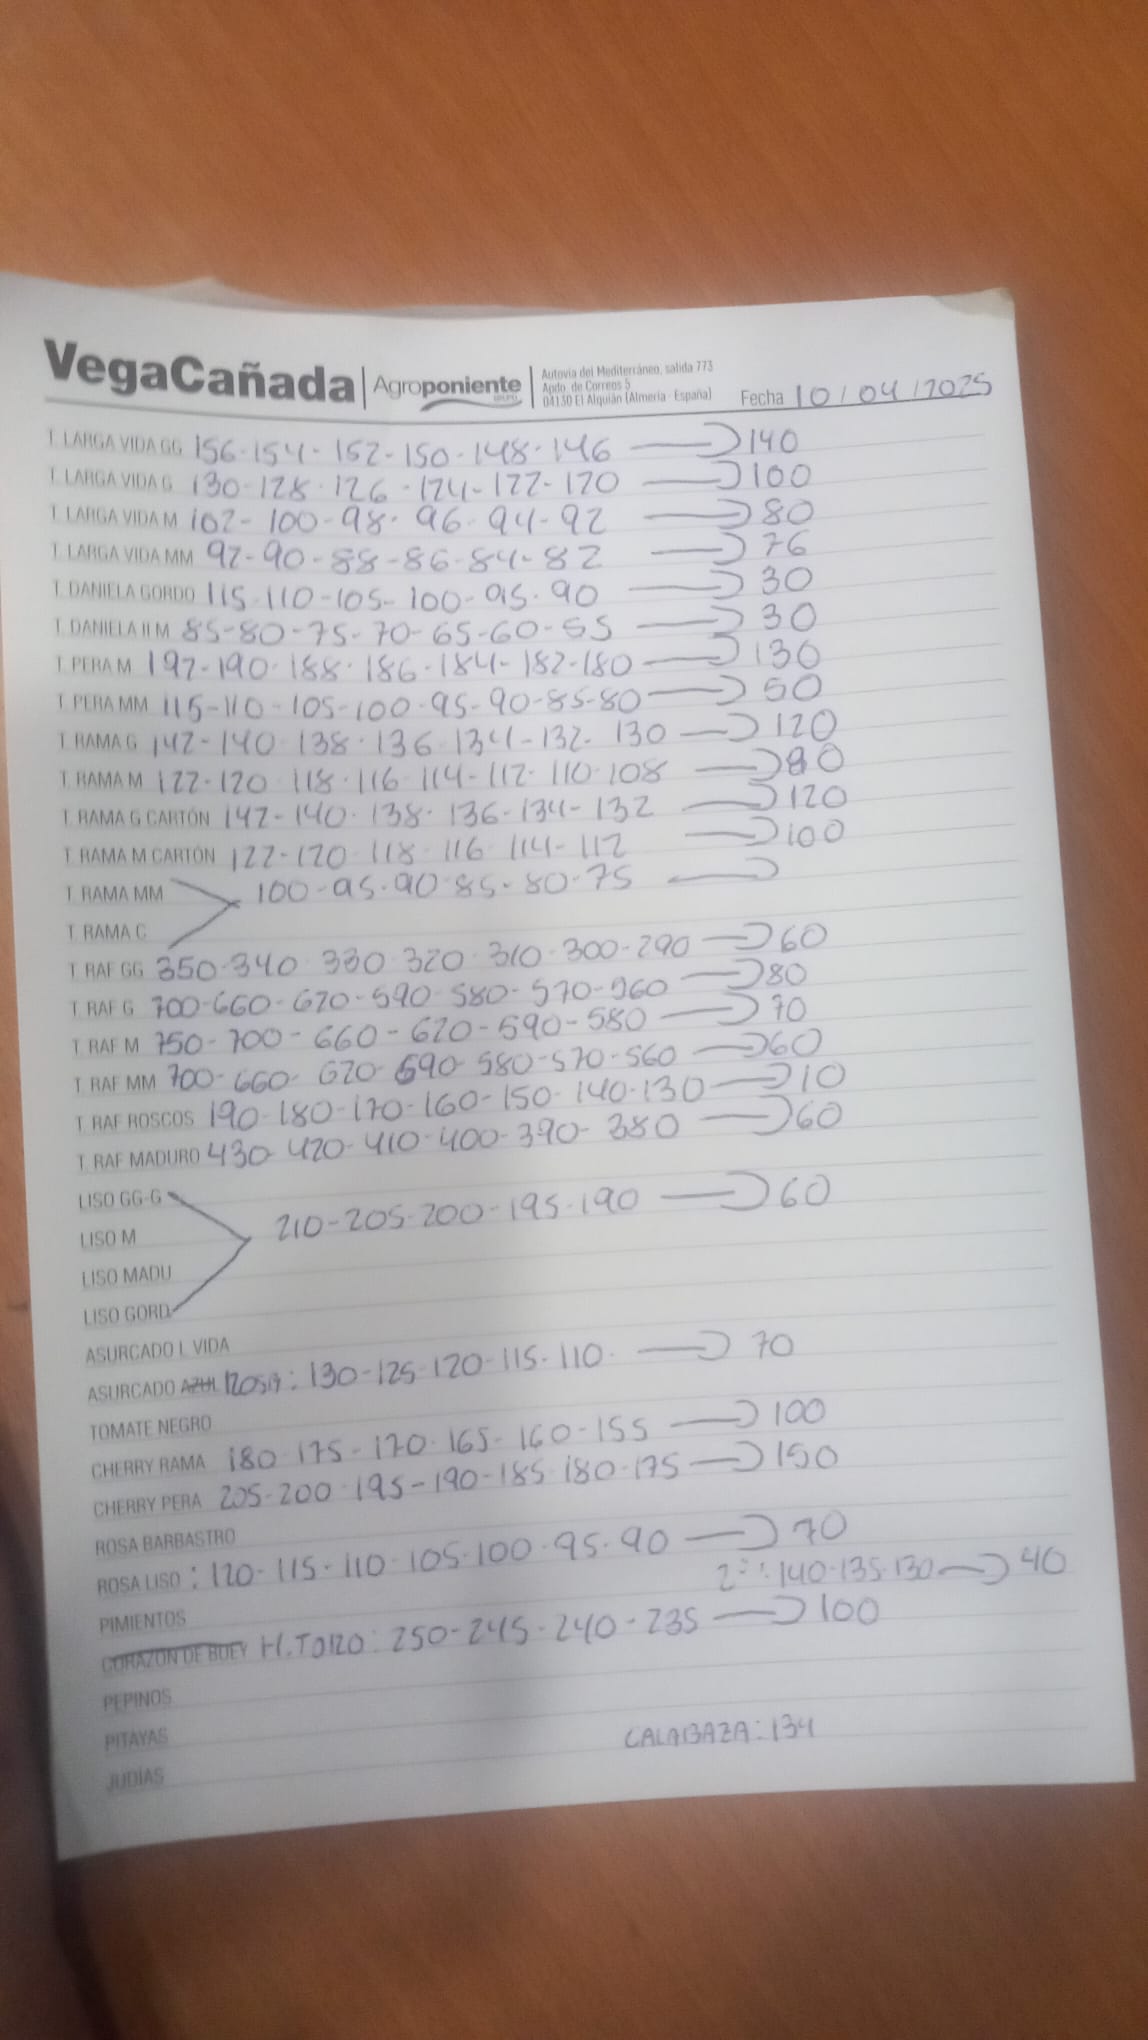 VegaCañada | Agroponiente | Autovía del Mediterráneo, salida 773
Apdo. de Correos 5
04130 El Alquián (Almería - España)
Fecha 10/04/2025
T. LARGA VIDA GG 156-154-152-150-148-146 → 140
T. LARGA VIDA G 130-128-126-124-122-120 → 100
T. LARGA VIDA M 102-100-98-96-94-92 → 80
T. LARGA VIDA MM 92-90-88-86-84-82 → 76
T. DANIELA GORDO 115-110-105-100-95-90 → 30
T. DANIELA II M 85-80-75-70-65-60-55 → 30
T. PERA M 192-190-188-186-184-182-180 → 130
T. PERA MM 115-110-105-100-95-90-85-80 → 50
T. RAMA G 142-140-138-136-134-132-130 → 120
T. RAMA M 122-120-118-116-114-112-110-108 → 80
T. RAMA G CARTÓN 142-140-138-136-134-132 → 120
T. RAMA M CARTÓN 122-120-118-116-114-112 → 100
T. RAMA MM 100-95-90-85-80-75 →
T. RAMA C
T. RAF GG 350-340-330-320-310-300-290 → 60
T. RAF G 700-660-620-590-580-570-560 → 80
T. RAF M 750-700-660-620-590-580 → 70
T. RAF MM 700-660-620-590-580-570-560 → 60
T. RAF ROSCOS 190-180-170-160-150-140-130 → 10
T. RAF MADURO 430-420-410-400-390-380 → 60
LISO GG-G
210-205-200-195-190 → 60
LISO M
LISO MADU
LISO GORD
ASURCADO L VIDA
ASURCADO AZUL ROSA: 130-125-120-115-110 → 70
TOMATE NEGRO
CHERRY RAMA 180-175-170-165-160-155 → 100
CHERRY PERA 205-200-195-190-185-180-175 → 150
ROSA BARBASTRO
ROSA LISO : 120-115-110-105-100-95-90 → 70
2ª: 140-135-130 → 40
PIMIENTOS
CORAZON DE BUEY H.TORO: 250-245-240-235 → 100
PEPINOS
PITAYAS
CALABAZA: 134
JUDÍAS